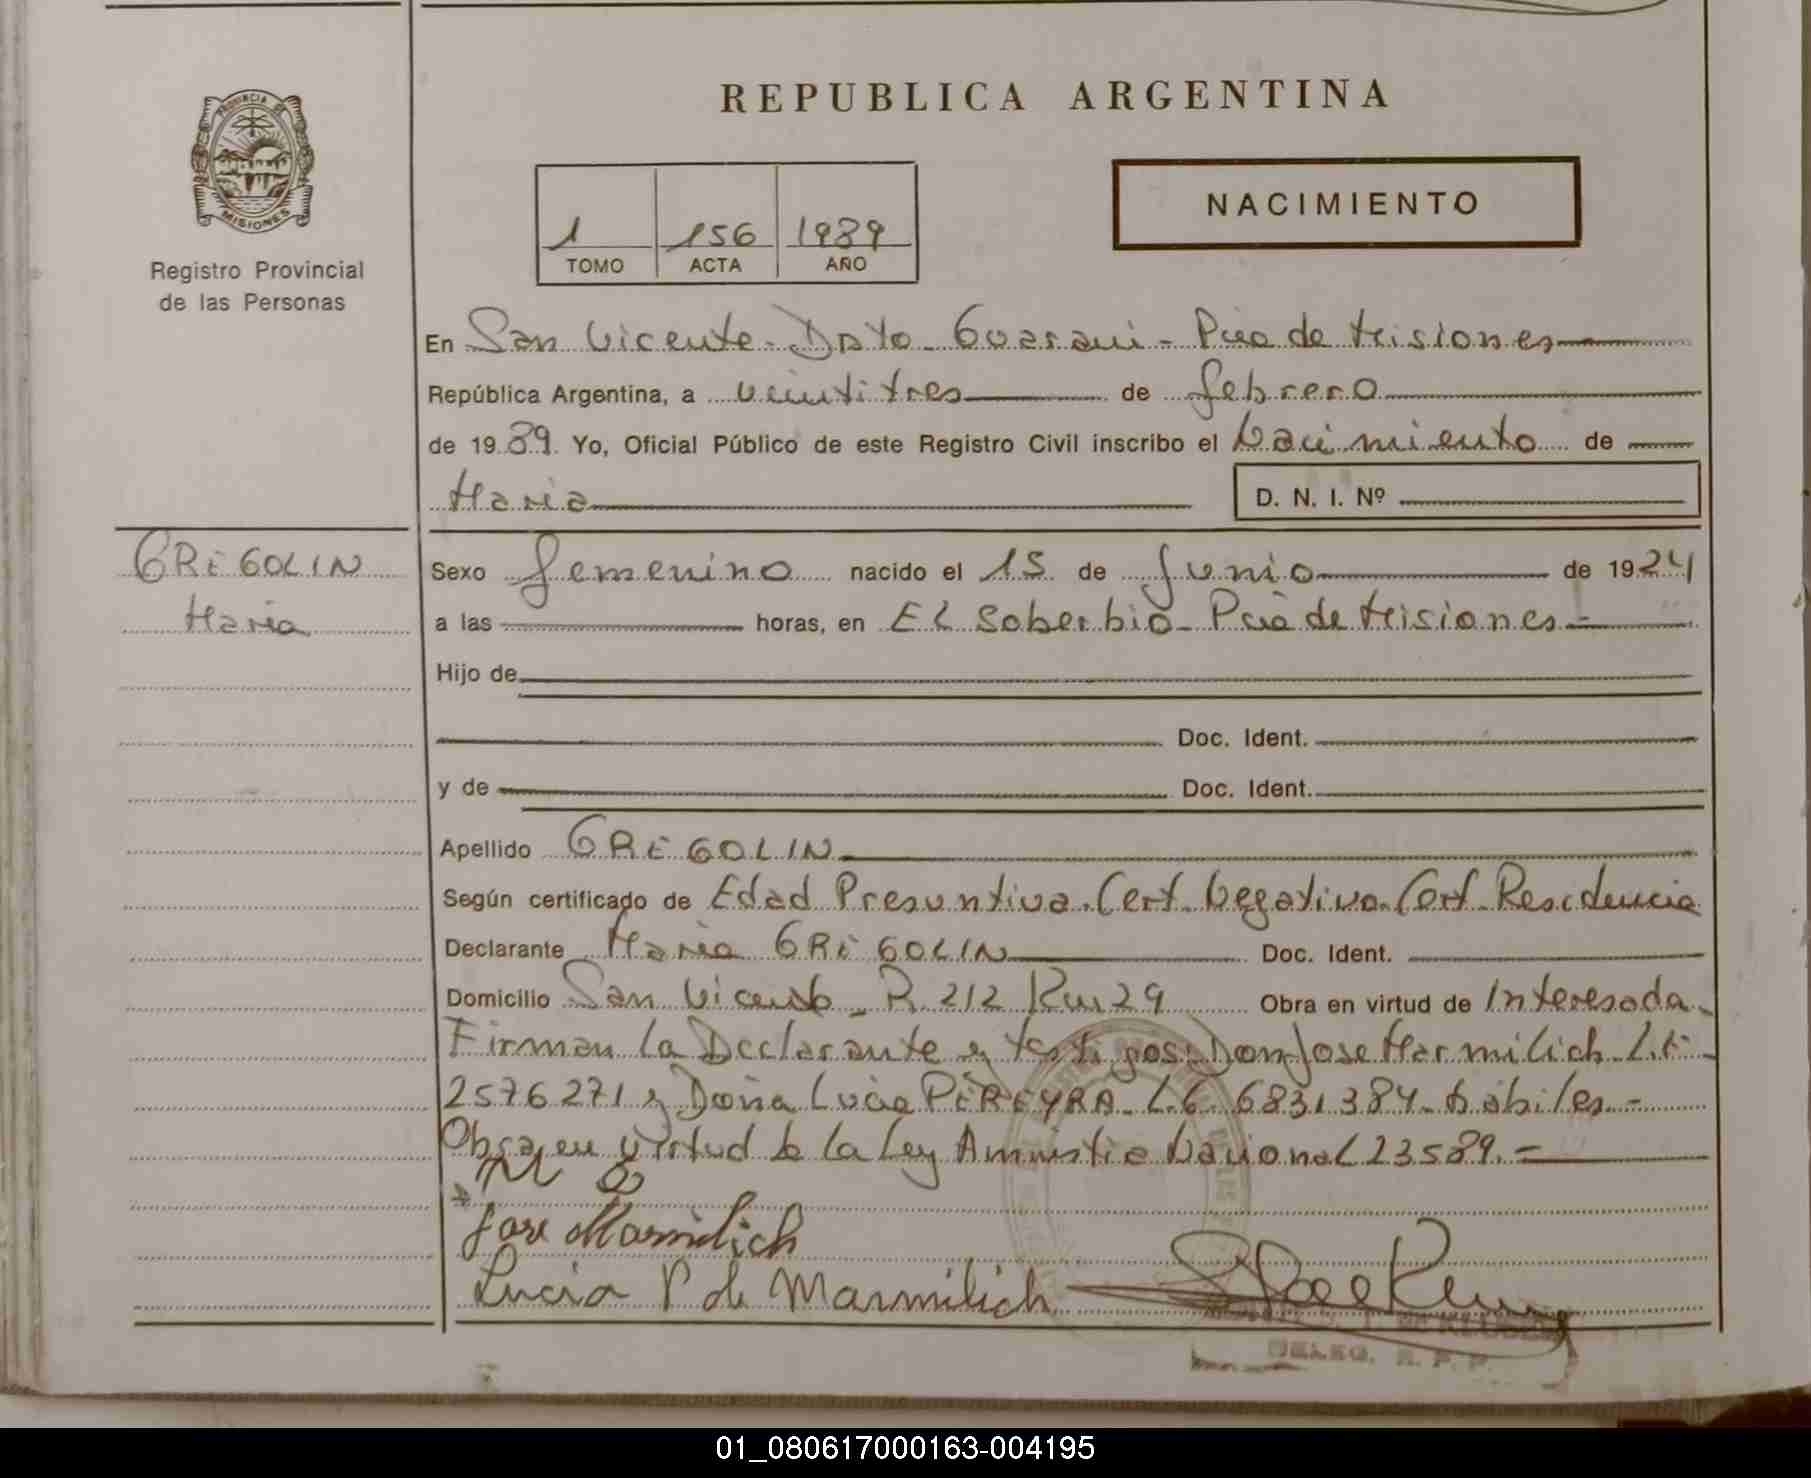 REPUBLICA ARGENTINA
PROVINCIA DE MISIONES
Registro Provincial
de las Personas
NACIMIENTO
1 156 1989
TOMO ACTA AÑO
En San Vicente - Dpto - Guarani - Pcia de Misiones
República Argentina, a veintitres de febrero
de 1989. Yo, Oficial Público de este Registro Civil inscribo el Nacimiento de
Maria D. N. I. Nº
GREGOLIN
Maria
Sexo femenino nacido el 15 de Junio de 1924
a las horas, en El Soberbio - Pcia de Misiones -
Hijo de
Doc. Ident.
y de Doc. Ident.
Apellido GREGOLIN
Según certificado de Edad Presuntiva. Cert. Negativo. Cert. Residencia
Declarante Maria GREGOLIN Doc. Ident.
Domicilio San Vicente - R. 212 Km 29 Obra en virtud de Interesada -
Firman la Declarante y testigos: Don Jose Marmilich L.E.
2576271 y Doña Lucia PEREYRA - L.C. 6831384 - hábiles -
Obra en virtud de la Ley Amnistia Nacional 23589. -
Jose Marmilich
Lucia P de Marmilich
DELEG. R. P. P.
01_080617000163-004195